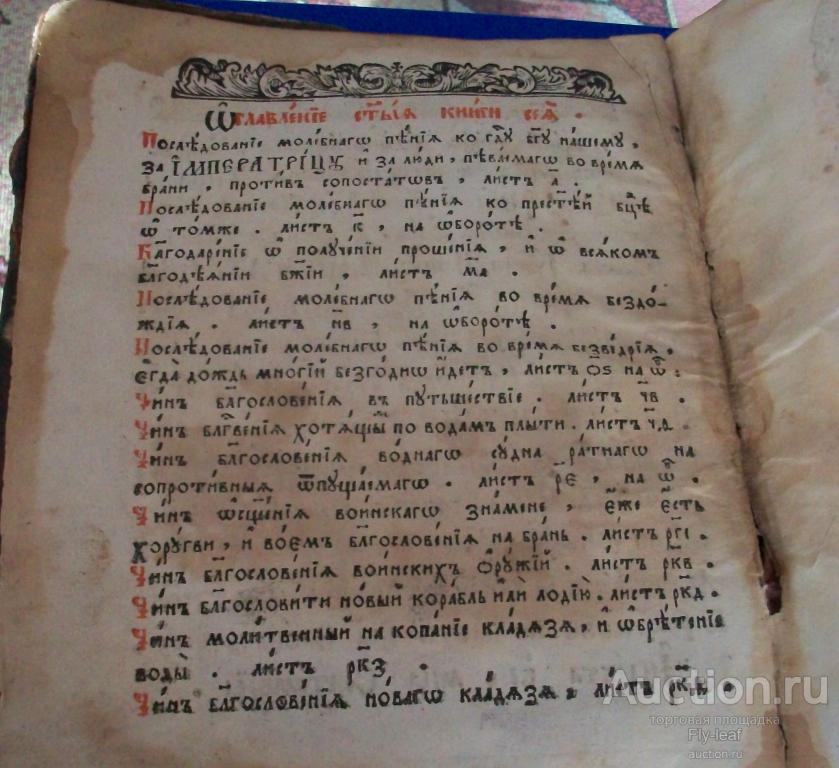 Ѡ҆главле́нїе ст҃ы́ѧ кни́ги сеѧ̀ .
Послѣ́дованїе моле́бнагѡ пѣ́нїѧ ко гдⷭ҇ꙋ бг҃ꙋ на́шемꙋ ,
за І҆МПЕРАТРИ́ЦꙊ и҆ за лю́ди , пѣва́емагѡ во вре́мѧ
бра́ни . проти́въ сопоста́тѡвъ , ли́стъ а҃ .
Послѣ́дованїе моле́бнагѡ пѣ́нїѧ ко прест҃ѣ́й бцⷣѣ
ѡ҆ то́мже . ли́стъ к҃ , на ѡ҆боро́тѣ .
Благодаре́нїе ѡ҆ полꙋче́нїи проше́нїѧ , и҆ ѡ҆ всѧ́комъ
бл҃годѣѧ́нїи бж҃їи , ли́стъ м҃а .
Послѣ́дованїе моле́бнагѡ пѣ́нїѧ во вре́мѧ бездо-
жді́ѧ . ли́стъ н҃в , на ѡ҆боро́тѣ .
Послѣ́дованїе моле́бнагѡ пѣ́нїѧ во вре́мѧ безве́дрїѧ ,
є҆гда̀ до́ждь мно́гїй безго́днѡ и҆де́тъ , ли́стъ ѻ҃ѕ на ѡ҆б :
Чи́нъ бл҃гослове́нїѧ въ пꙋтьше́ствїе . ли́стъ ч҃в .
Чи́нъ блгⷭ҇ве́нїѧ хотѧ́щымъ по вода́мъ плы́ти . ли́стъ ч҃д .
Чи́нъ бл҃гослове́нїѧ во́днагѡ сꙋ́дна ра́тнагѡ на
сопроти́вныѧ ѿпꙋща́емагѡ . ли́стъ р҃е , на ѡ҆б .
Чи́нъ ѡ҆сщ҃е́нїѧ во́инскагѡ зна́мене , є҆́же є҆́сть
хорꙋ́гви , и҆ во́емъ бл҃гослове́нїѧ на бра́нь . ли́стъ р҃гі .
Чи́нъ бл҃гослове́нїѧ во́инскихъ ѻ҆рꙋ́жїй . ли́стъ р҃кв .
Чи́нъ бл҃гослови́ти но́вый кора́бль и҆лѝ лодїю̀ . ли́стъ р҃кд .
Чи́нъ моли́твенный на копа́нїе кла́дѧзѧ , и҆ ѡ҆брѣ́тенїе
воды̀ . ли́стъ р҃кз .
Чи́нъ бл҃гослове́нїѧ но́вагѡ кла́дѧзѧ , ли́стъ
Auction.ru
торговая площадка
Fly-leaf
auction.ru